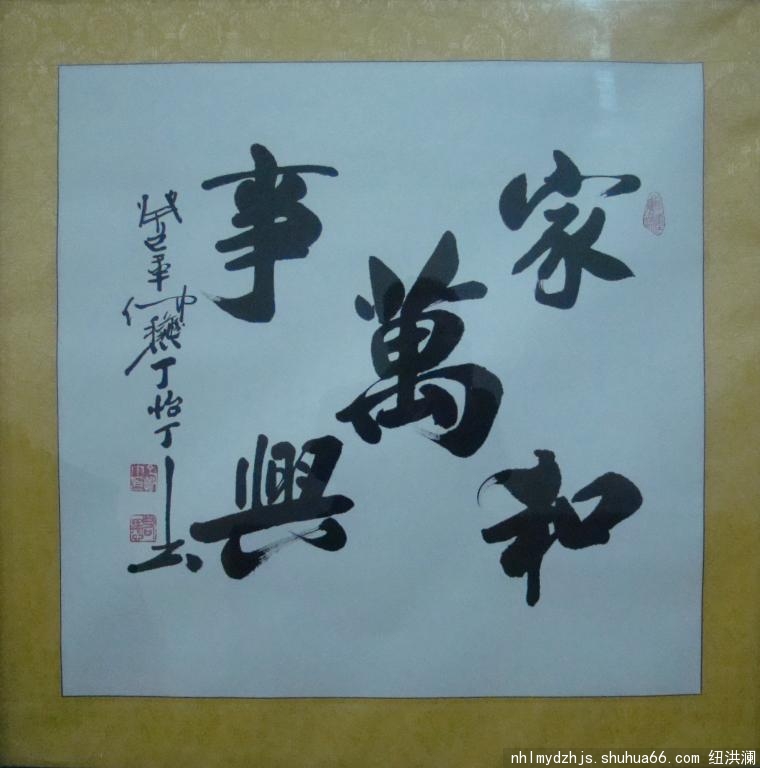 家和
萬
事興
癸巳年仲穐丁怡丁
nhlmydzhjs.shuhua66.com 纽洪澜